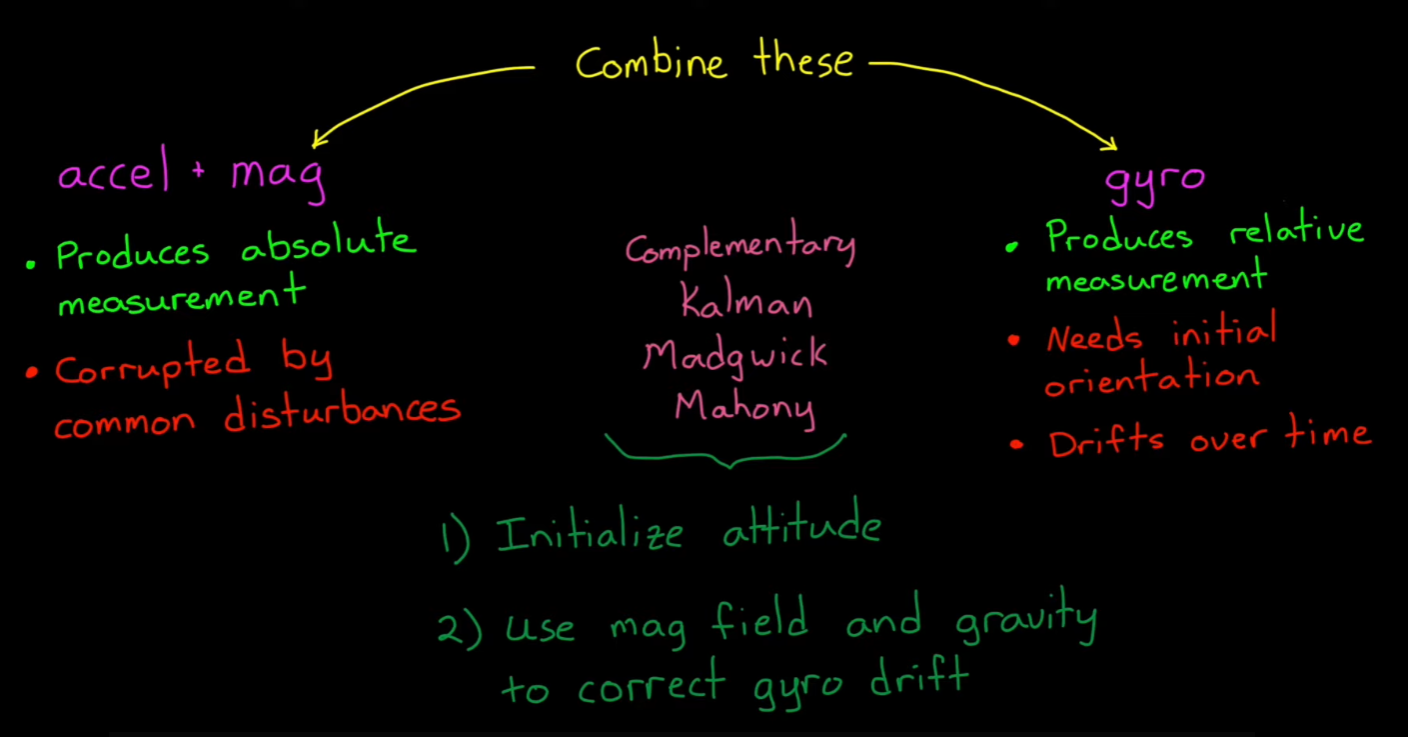 Combine these
accel + mag
• Produces absolute
measurement
• Corrupted by
common disturbances
Complementary
Kalman
Madgwick
Mahony
gyro
• Produces relative
measurement
• Needs initial
orientation
• Drifts over time
1) Initialize attitude
2) use mag field and gravity
to correct gyro drift